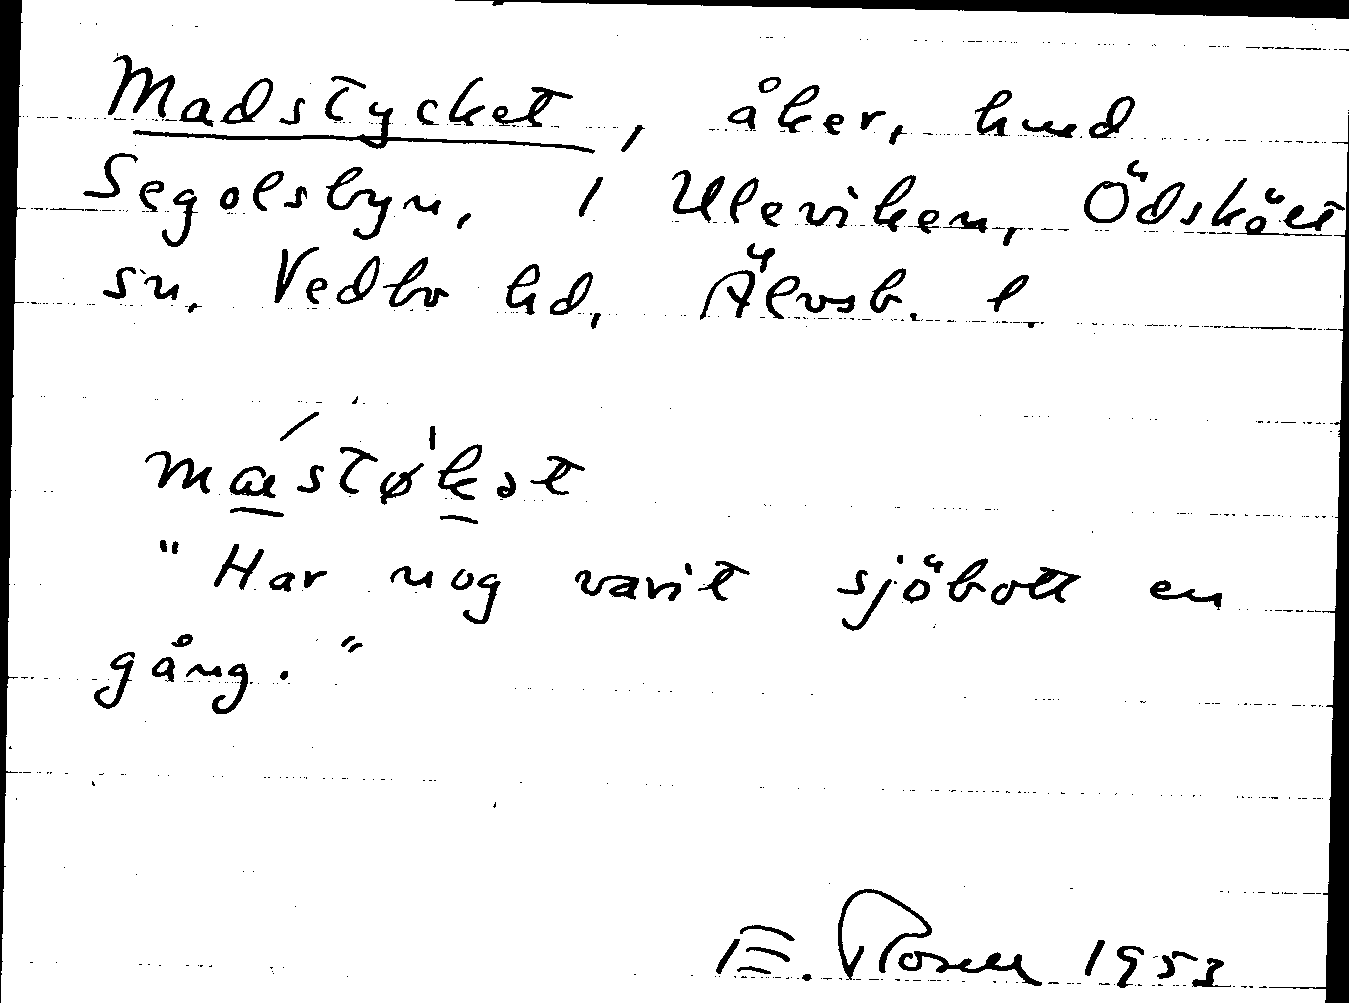 Madstycket, åker, hmd
Segolsbyn, 1 Uleviken, Ödsköлt
sn. Vedbo hd, Älvsb. l.
mǽstø̍kət
"Har nog varit sjöbott en
gång."
E. Rosell 1953